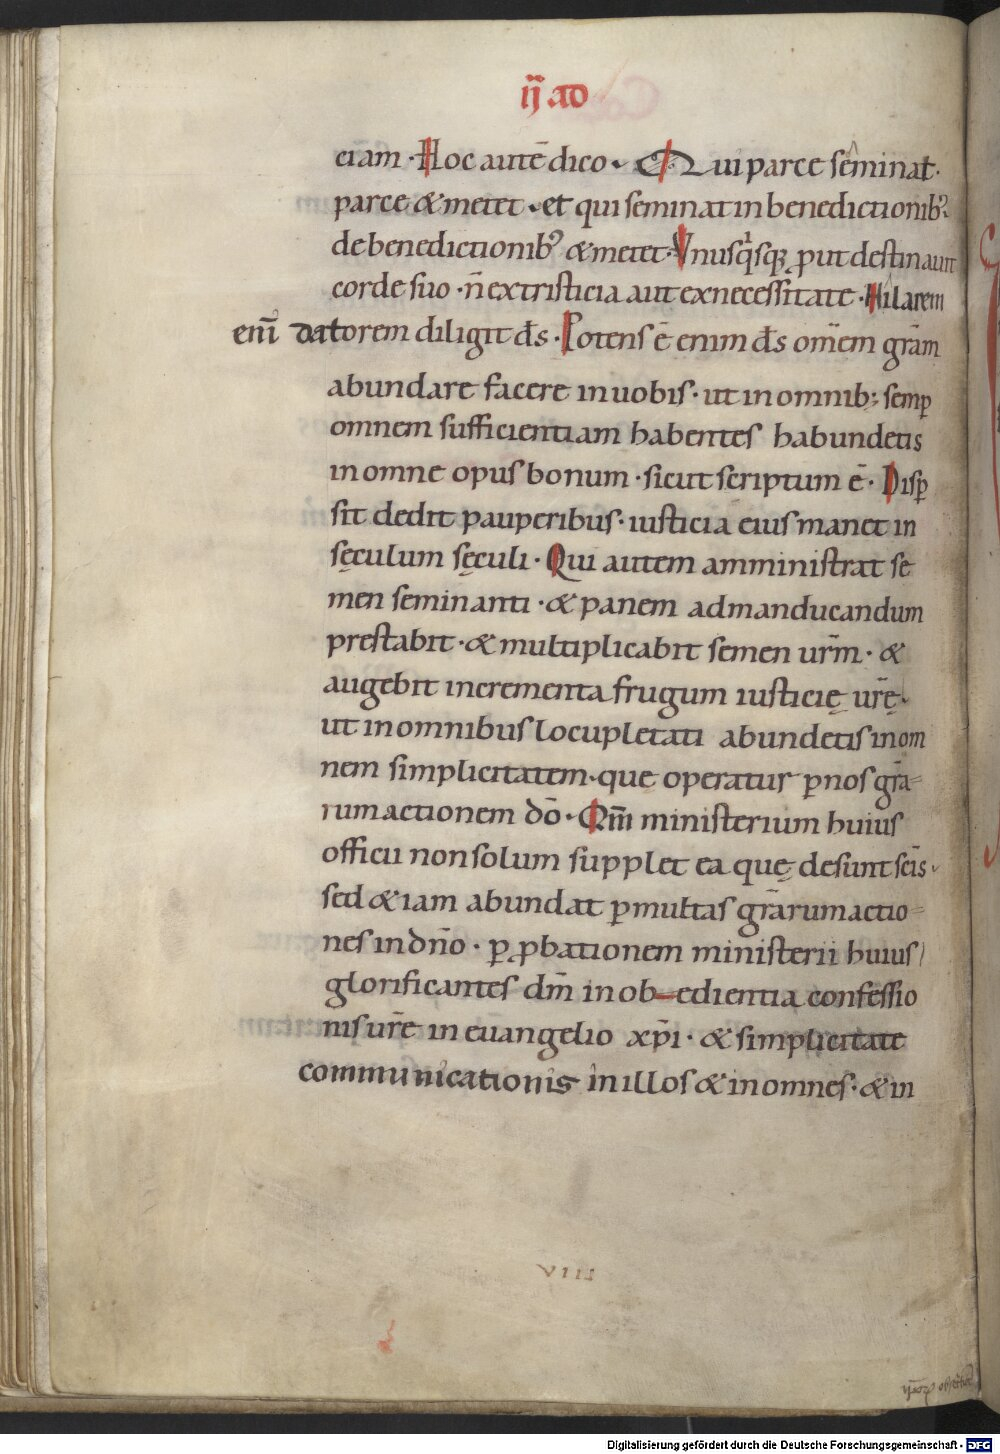 ij ad
ciam · Hoc autē dico · Qui parce seminat ·
parce & metet · et qui seminat in benedictionib;
de benedictionib; & metet · Vnusqͥsq; ꝓut destinauit
corde suo · n̄ ex tristicia aut ex necessitate · Hilarem
eni᷒ datorem diligit ds̄ · Potens ē enim ds̄ om̄em grām
abundare facere in uobis · ut in omnib; semꝑ
omnem sufficientiam habentes habundetis
in omne opus bonum · sicut scriptum ē · Disꝑ
sit dedit pauperibus · iusticia eius manet in
sęculum sęculi · Qui autem amministrat se
men seminanti · & panem ad manducandum
prestabit · & multiplicabit semen ur̄m · &
augebit incrementa frugum iusticię ur̄ę ·
ut in omnibus locupletati abundetis in om
nem simplicitatem · que operatur ꝑ nos gr̄a-
rum actionem dō · Qm̄ ministerium huius
officii non solum supplet ea quę desunt sc̄is ·
sed & iam abundat ꝑ multas gr̄arum actio-
nes in dn̄o · ꝑ ꝓbationem ministerii huius
glorificantes dm̄ in ob-edientia confessio
nis ur̄e in euangelio xp̄i · & simplicitate
communicationis in illos & in omnes · & in
VIII
Digitalisierung gefördert durch die Deutsche Forschungsgemeinschaft - DFG